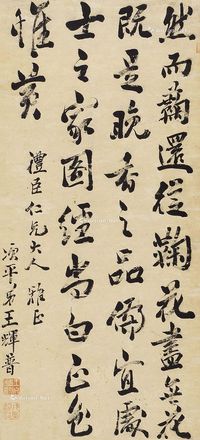 然而菊還從鞠花盡無花
既是晚香之品偏宜處
士之家圖經尚白正色
惟黃
澧臣仁兄大人雅正
頌平弟王輝普